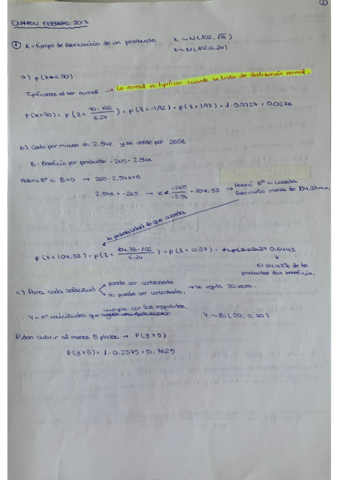 EXAMEN FEBRERO 2013
① X = Tiempo de fabricación de un producto X ~ N(102,
X ~ N(102, 6.24)
a) P(X < 90)
Tipificamos al ser normal → La normal es tipificar cuando se trata de distribución normal.
P(X < 90) = P(Z < 90 - 102 / 6.24) = P(Z < -1,92) = P(Z > 1,92) = 1 - 0.9726 = 0.0274
b) Coste por minuto es 2.54€ y se vende por 265€
B = Beneficio por producto = 265 - 2.54X
Habrá Bº = B > 0 → 265 - 2.54X > 0
2.54X > -265 → X < -265 / -2.54 = 104,33 → Habrá Bº = cuando
fabricarlo menos de 104,33 min
la probabilidad de que suceda
P(X < 104,33) = P(Z < 104,33 - 102 / 6.24) = P(Z < 0.37) = 0.6443
El 64.43% de los
productos dan beneficio.
c) Para cada solicitud
puede ser contratado
no puede ser contratado.
→ se repite 20 veces.
cumple con los requisitos.
Y = nº solicitudes que
Y ~ B(20, 0,30)
Piden cubrir al menos 5 plazas → P(Y ≥ 5)
P(Y ≥ 5) = 1 - 0.2375 = 0.7625